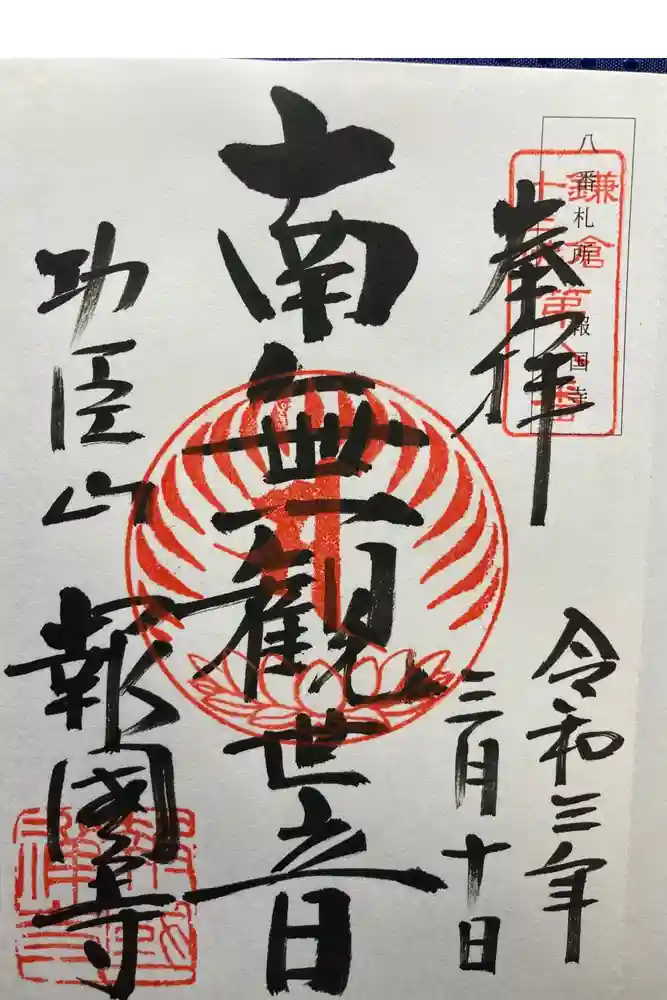 八番札所 報国寺
鎌倉
十三仏第八番
奉拝
令和三年
三月十日
南無観世音
功臣山
報國寺